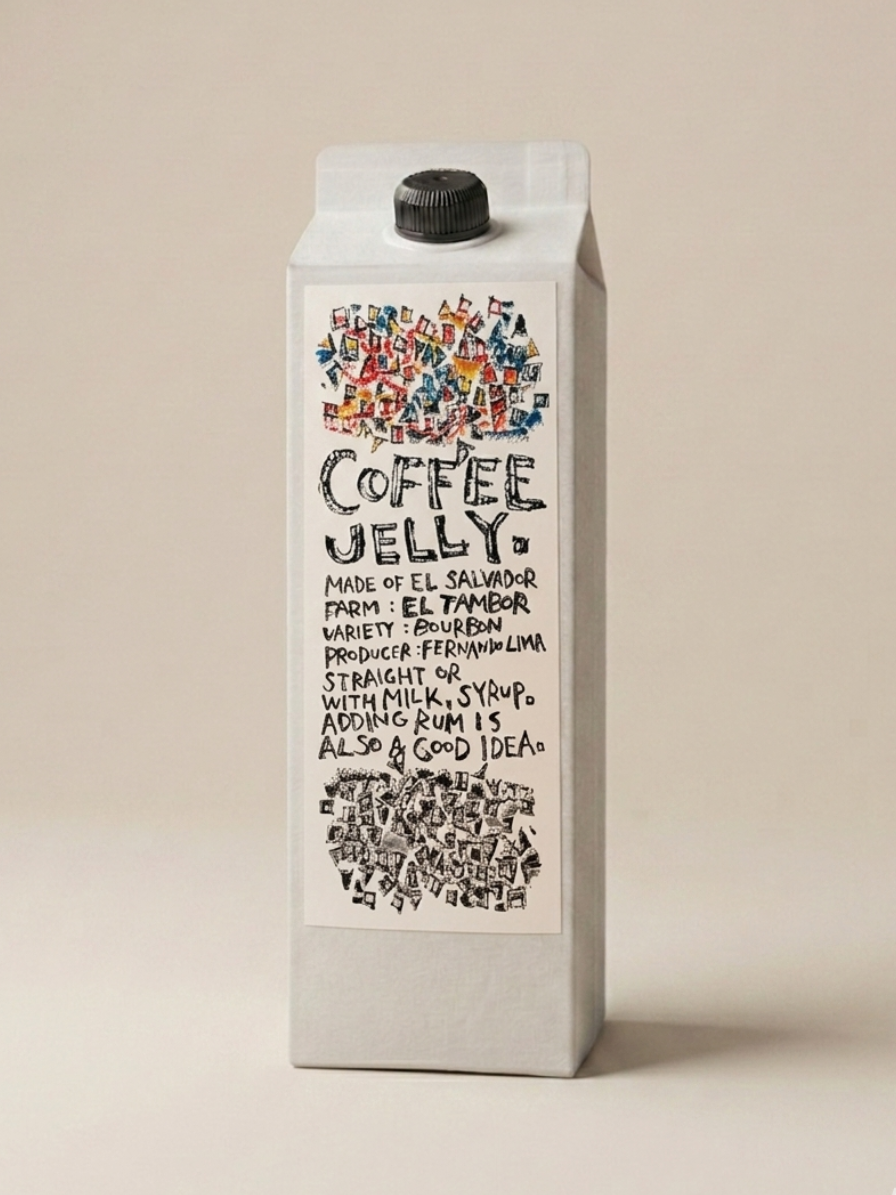 COFFEE
JELLY.
MADE OF EL SALVADOR
FARM : EL TAMBOR
VARIETY : BOURBON
PRODUCER : FERNANDO LIMA
STRAIGHT OR
WITH MILK, SYRUP.
ADDING RUM IS
ALSO A GOOD IDEA.